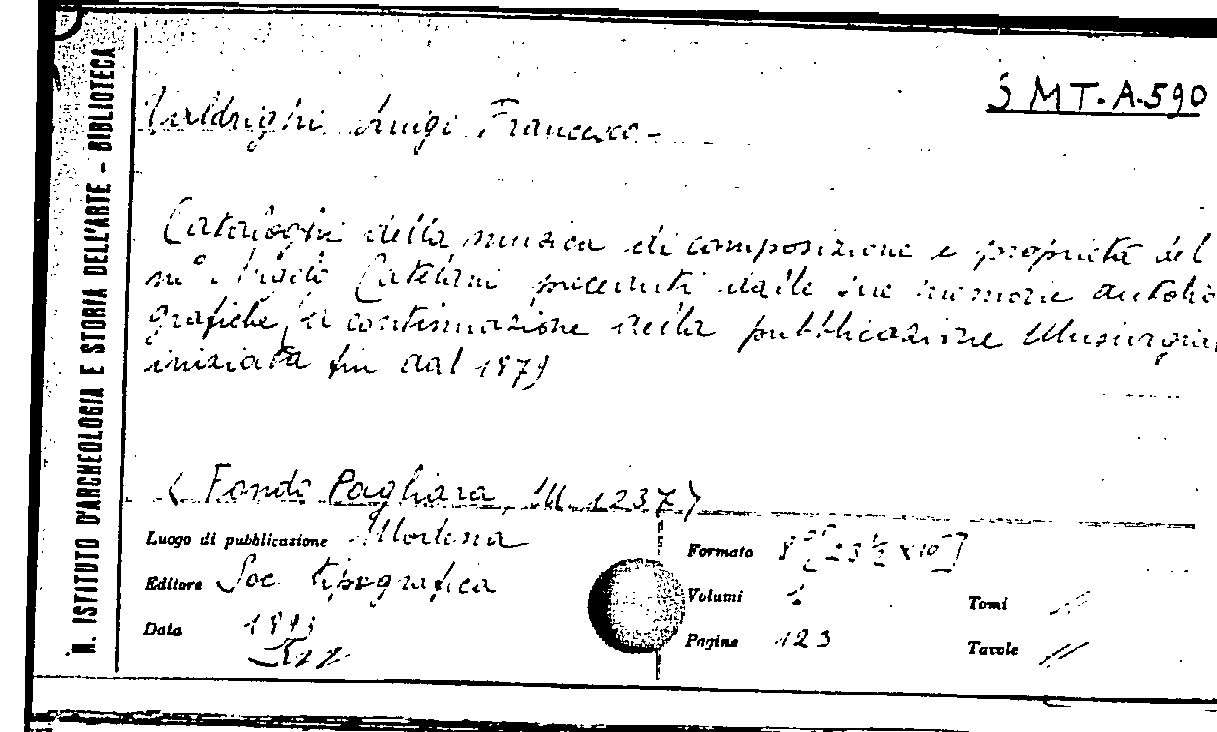 N. ISTITUTO D'ARCHEOLOGIA E STORIA DELL'ARTE - BIBLIOTECA
SMT.A.590
Valdrighi Luigi Francesco-
Cataloghi della musica di composizione e proprietà del
m° Angelo Catelani preceduti dalle sue memorie autobio
grafiche, a continuazione della pubblicazione Musurgian
iniziata fin dal 1879
(Fondo Pagliara, M. 1237)
Luogo di pubblicazione Modena
Editore Soc tipografica
Data 1893
Formato 8° [23 ½ x 16]
Volumi 1
Tomi //
Pagine 123
Tavole //